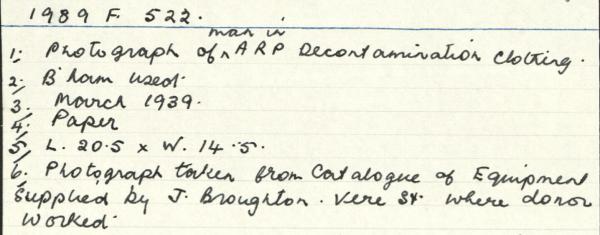 1989 F. 522.
1. Photograph of man in ARP Decontamination Clothing.
2. B'ham used.
3. March 1939.
4. Paper
5. L. 20.5 x W. 14.5.
6. Photograph taken from Catalogue of Equipment
supplied by J. Broughton. Vere St. where donor
worked.